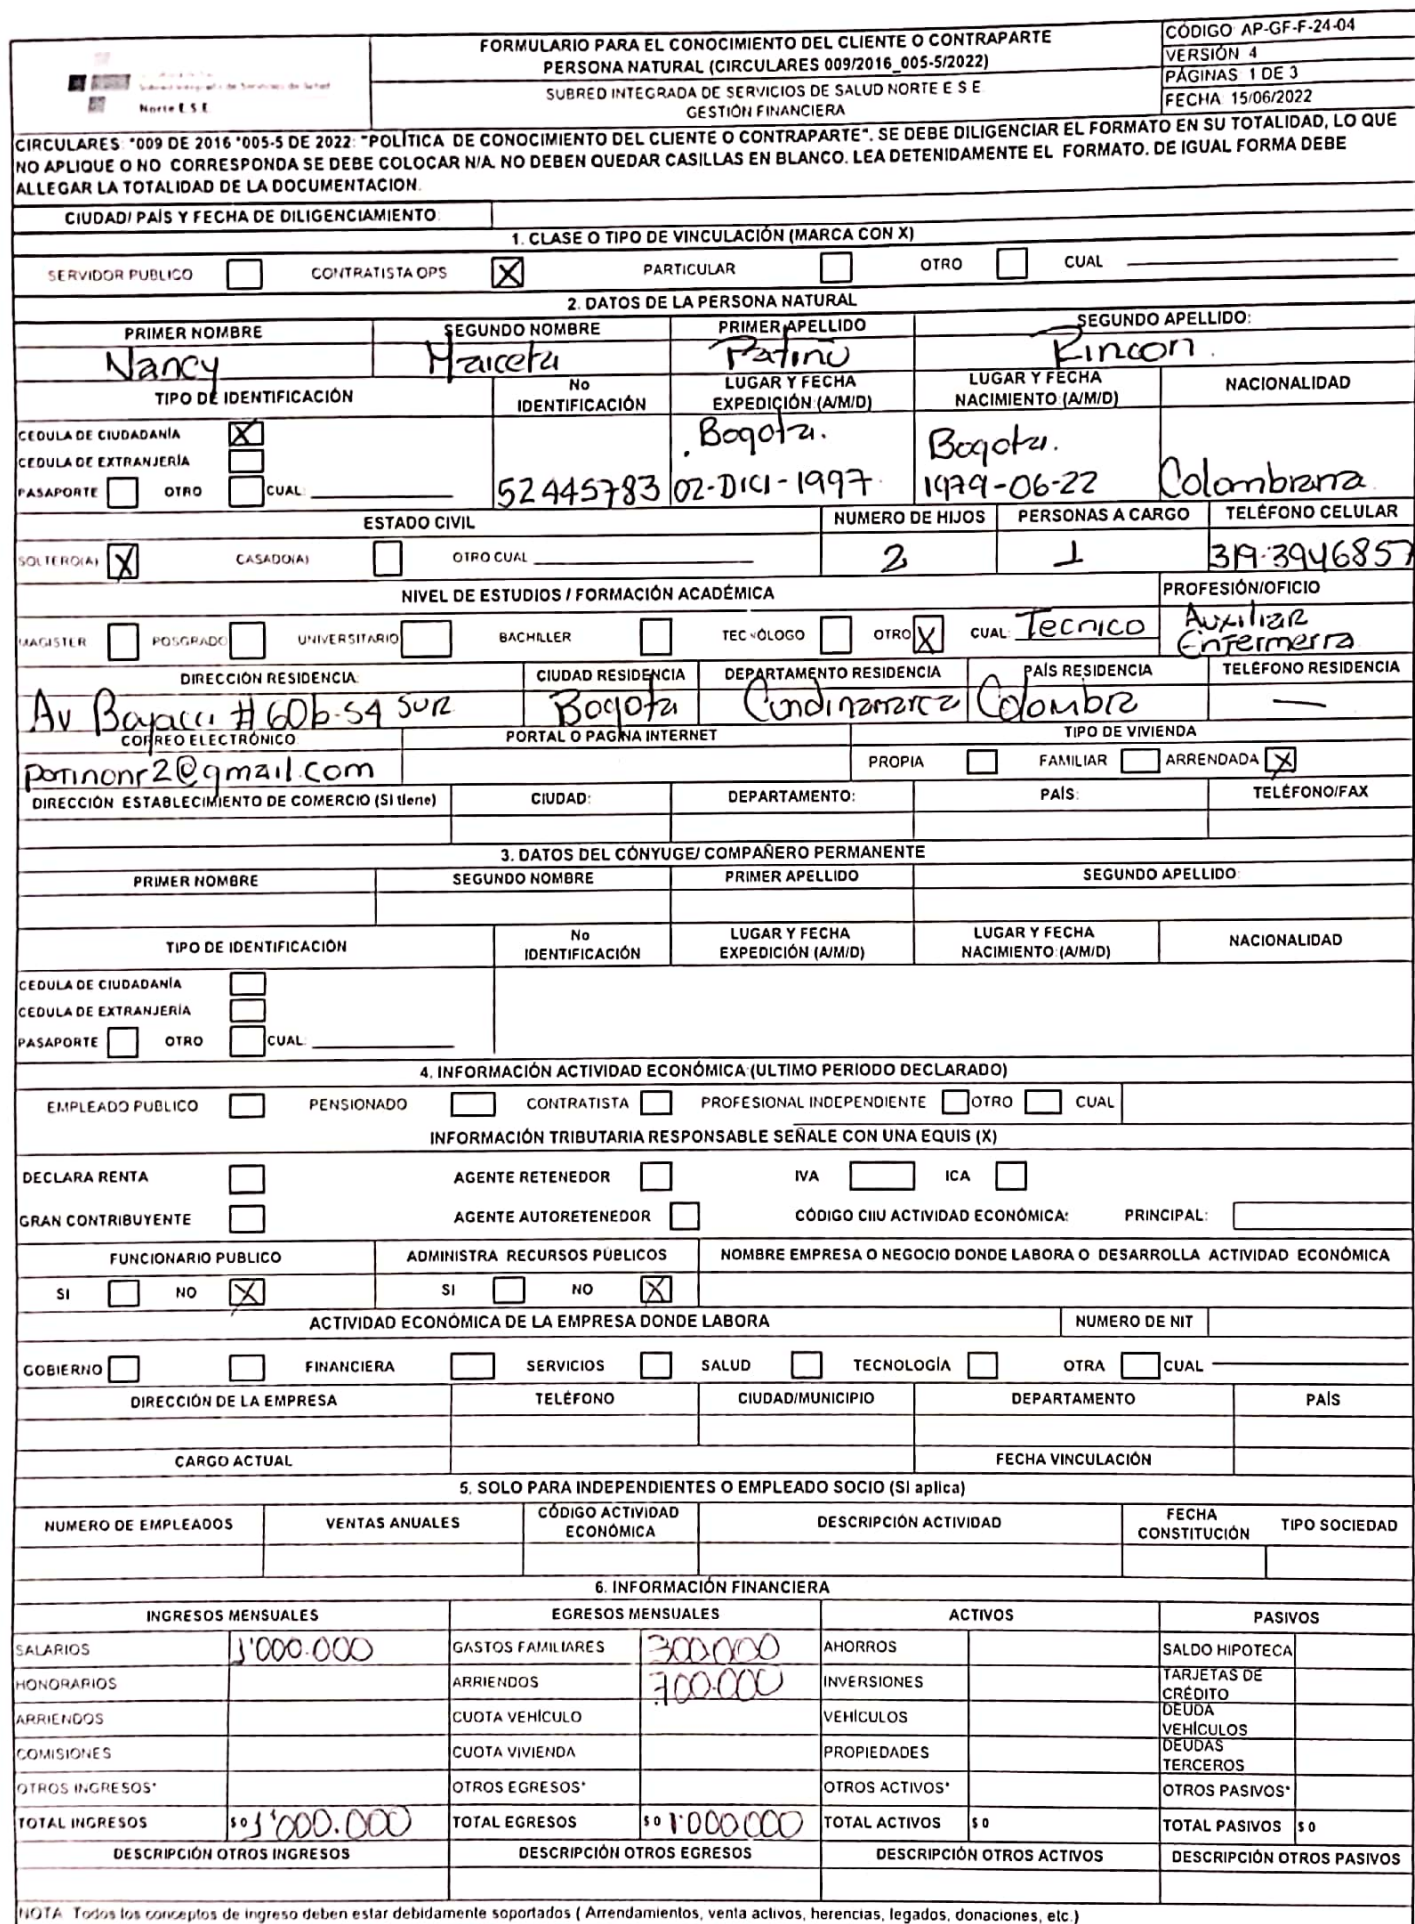 Norte E.S.E.
FORMULARIO PARA EL CONOCIMIENTO DEL CLIENTE O CONTRAPARTE
PERSONA NATURAL (CIRCULARES 009/2016_005-5/2022)
SUBRED INTEGRADA DE SERVICIOS DE SALUD NORTE E S E
GESTIÓN FINANCIERA
CÓDIGO: AP-GF-F-24-04
VERSIÓN 4
PÁGINAS 1 DE 3
FECHA 15/06/2022
CIRCULARES: *009 DE 2016 *005-5 DE 2022: "POLÍTICA DE CONOCIMIENTO DEL CLIENTE O CONTRAPARTE". SE DEBE DILIGENCIAR EL FORMATO EN SU TOTALIDAD, LO QUE
NO APLIQUE O NO CORRESPONDA SE DEBE COLOCAR N/A. NO DEBEN QUEDAR CASILLAS EN BLANCO. LEA DETENIDAMENTE EL FORMATO. DE IGUAL FORMA DEBE
ALLEGAR LA TOTALIDAD DE LA DOCUMENTACION.
CIUDAD/ PAÍS Y FECHA DE DILIGENCIAMIENTO:
1. CLASE O TIPO DE VINCULACIÓN (MARCA CON X)
SERVIDOR PUBLICO CONTRATISTA OPS X PARTICULAR OTRO CUAL
2. DATOS DE LA PERSONA NATURAL
PRIMER NOMBRE SEGUNDO NOMBRE PRIMER APELLIDO SEGUNDO APELLIDO:
Nancy Patiño Rincon.
TIPO DE IDENTIFICACIÓN No IDENTIFICACIÓN LUGAR Y FECHA EXPEDICIÓN:(A/M/D) LUGAR Y FECHA NACIMIENTO:(A/M/D) NACIONALIDAD
CEDULA DE CIUDADANÍA X Bogota. Bogota.
CEDULA DE EXTRANJERÍA
PASAPORTE OTRO CUAL: 52445783 02-DICI-1997 1979-06-22 Colombiana
ESTADO CIVIL NUMERO DE HIJOS PERSONAS A CARGO TELÉFONO CELULAR
SOLTERO(A) X CASADO(A) OTRO CUAL 2 1 319-3946857
NIVEL DE ESTUDIOS / FORMACIÓN ACADÉMICA PROFESIÓN/OFICIO
MAGISTER POSGRADO UNIVERSITARIO BACHILLER TECNÓLOGO OTRO X CUAL: Tecnico Auxiliar Enfermerra
DIRECCIÓN RESIDENCIA: CIUDAD RESIDENCIA DEPARTAMENTO RESIDENCIA PAÍS RESIDENCIA TELÉFONO RESIDENCIA
Av Boyaca # 60b-54 sur Bogota Cundinamarca Colombia —
CORREO ELECTRÓNICO PORTAL O PAGINA INTERNET TIPO DE VIVIENDA
patinonr2@gmail.com PROPIA FAMILIAR ARRENDADA X
DIRECCIÓN ESTABLECIMIENTO DE COMERCIO (SI tiene) CIUDAD: DEPARTAMENTO: PAÍS: TELÉFONO/FAX
3. DATOS DEL CÓNYUGE/ COMPAÑERO PERMANENTE
PRIMER NOMBRE SEGUNDO NOMBRE PRIMER APELLIDO SEGUNDO APELLIDO:
TIPO DE IDENTIFICACIÓN No IDENTIFICACIÓN LUGAR Y FECHA EXPEDICIÓN (A/M/D) LUGAR Y FECHA NACIMIENTO:(A/M/D) NACIONALIDAD
CEDULA DE CIUDADANÍA
CEDULA DE EXTRANJERÍA
PASAPORTE OTRO CUAL:
4. INFORMACIÓN ACTIVIDAD ECONÓMICA:(ULTIMO PERIODO DECLARADO)
EMPLEADO PUBLICO PENSIONADO CONTRATISTA PROFESIONAL INDEPENDIENTE OTRO CUAL
INFORMACIÓN TRIBUTARIA RESPONSABLE SEÑALE CON UNA EQUIS (X)
DECLARA RENTA AGENTE RETENEDOR IVA ICA
GRAN CONTRIBUYENTE AGENTE AUTORETENEDOR CÓDIGO CIIU ACTIVIDAD ECONÓMICA: PRINCIPAL:
FUNCIONARIO PUBLICO ADMINISTRA RECURSOS PÚBLICOS NOMBRE EMPRESA O NEGOCIO DONDE LABORA O DESARROLLA ACTIVIDAD ECONÓMICA
SI NO X SI NO X
ACTIVIDAD ECONÓMICA DE LA EMPRESA DONDE LABORA NUMERO DE NIT
GOBIERNO FINANCIERA SERVICIOS SALUD TECNOLOGÍA OTRA CUAL
DIRECCIÓN DE LA EMPRESA TELÉFONO CIUDAD/MUNICIPIO DEPARTAMENTO PAÍS
CARGO ACTUAL FECHA VINCULACIÓN
5. SOLO PARA INDEPENDIENTES O EMPLEADO SOCIO (SI aplica)
NUMERO DE EMPLEADOS VENTAS ANUALES CÓDIGO ACTIVIDAD ECONÓMICA DESCRIPCIÓN ACTIVIDAD FECHA CONSTITUCIÓN TIPO SOCIEDAD
6. INFORMACIÓN FINANCIERA
INGRESOS MENSUALES EGRESOS MENSUALES ACTIVOS PASIVOS
SALARIOS 1'000.000 GASTOS FAMILIARES 300.000 AHORROS SALDO HIPOTECA
HONORARIOS ARRIENDOS 700.000 INVERSIONES TARJETAS DE CRÉDITO
ARRIENDOS CUOTA VEHÍCULO VEHÍCULOS DEUDA VEHÍCULOS
COMISIONES CUOTA VIVIENDA PROPIEDADES DEUDAS TERCEROS
OTROS INGRESOS* OTROS EGRESOS* OTROS ACTIVOS* OTROS PASIVOS*
TOTAL INGRESOS $ 0 1'000.000 TOTAL EGRESOS $ 0 1'000000 TOTAL ACTIVOS $ 0 TOTAL PASIVOS $ 0
DESCRIPCIÓN OTROS INGRESOS DESCRIPCIÓN OTROS EGRESOS DESCRIPCIÓN OTROS ACTIVOS DESCRIPCIÓN OTROS PASIVOS
NOTA: Todos los conceptos de ingreso deben estar debidamente soportados ( Arrendamientos, venta activos, herencias, legados, donaciones, etc.)